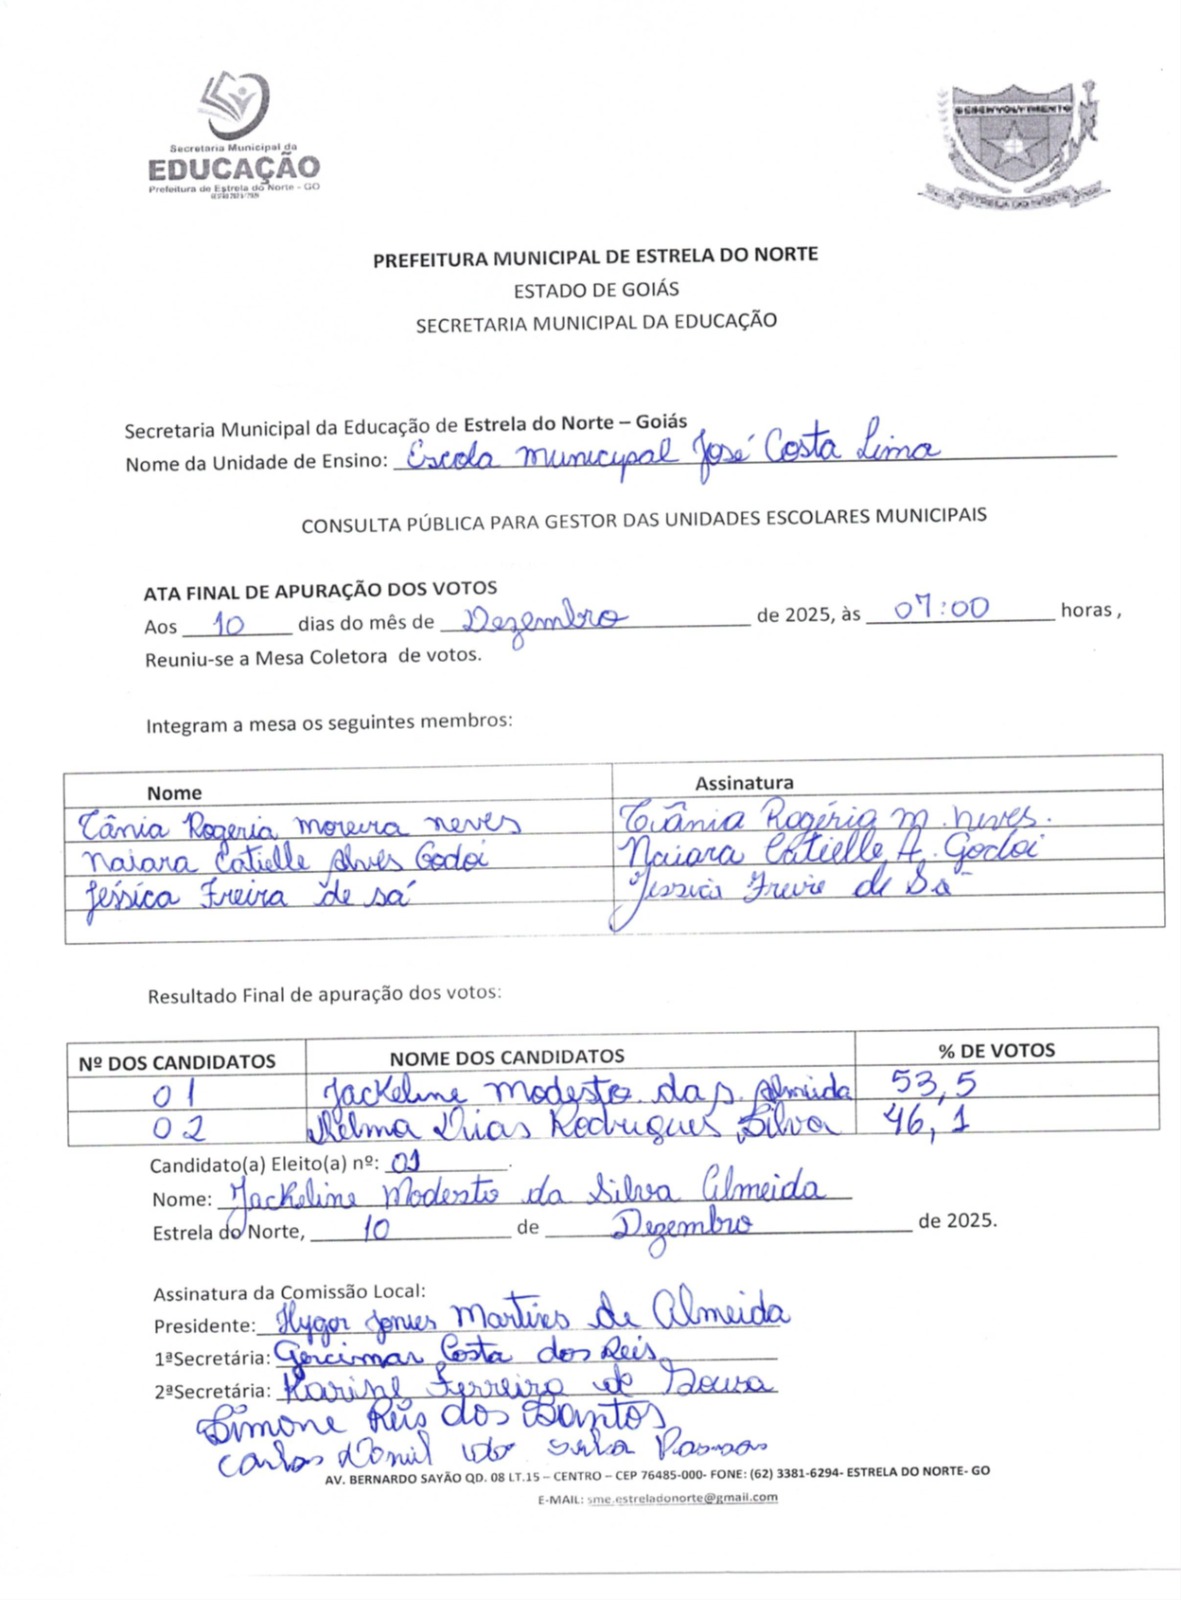 Secretaria Municipal da
EDUCAÇÃO
Prefeitura de Estrela do Norte - GO
DESENVOLVIMENTO
ESTRELA DO NORTE
PREFEITURA MUNICIPAL DE ESTRELA DO NORTE
ESTADO DE GOIÁS
SECRETARIA MUNICIPAL DA EDUCAÇÃO
Secretaria Municipal da Educação de Estrela do Norte – Goiás
Nome da Unidade de Ensino: Escola Municypal José Costa Lima
CONSULTA PÚBLICA PARA GESTOR DAS UNIDADES ESCOLARES MUNICIPAIS
ATA FINAL DE APURAÇÃO DOS VOTOS
Aos 10 dias do mês de Dezembro de 2025, às 07:00 horas ,
Reuniu-se a Mesa Coletora de votos.
Integram a mesa os seguintes membros:
Nome Assinatura
Tânia Rogeria Moreira neves Tânia Rogéria M. neves.
Naiara Catielle Alves Godoi Naiara Catielle A. Godoi
Jéssica Freira de sá Jessica Freire de Sá
Resultado Final de apuração dos votos:
Nº DOS CANDIDATOS NOME DOS CANDIDATOS % DE VOTOS
01 Jackeline Modesto da S. Almeida 53,5
02 Dias Rodrigues Silva 46,1
Candidato(a) Eleito(a) nº: 01
Nome: Jackeline Modesto da Silva Almeida
Estrela do Norte, 10 de Dezembro de 2025.
Assinatura da Comissão Local:
Presidente: Hygor Martins de Almeida
1ªSecretária: Gercimar Costa dos Reis
2ªSecretária: Karine Ferreira de Sousa
Simone Reis dos Santos
Carlos da Silva
AV. BERNARDO SAYÃO QD. 08 LT.15 – CENTRO – CEP 76485-000- FONE: (62) 3381-6294- ESTRELA DO NORTE- GO
E-MAIL: sme.estreladonorte@gmail.com